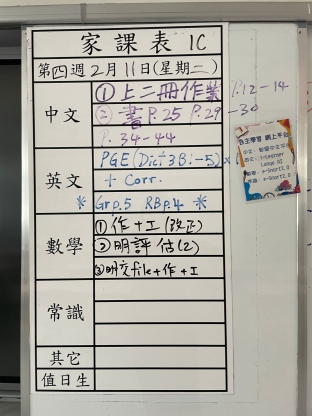 家課表 1C
第四週 2月11日(星期二)
中文
① 上二冊作業 P.12-14
② 書 P.25 P.29-30
P.34-44
英文
PGE (Dict 3B:-5) x1
+ Corr.
* Grp.5 RBp.4 *
數學
① 作+工(改正)
② 明評估(2)
③ 明交file+作+工
常識
其它
值日生
自主學習 網上平台